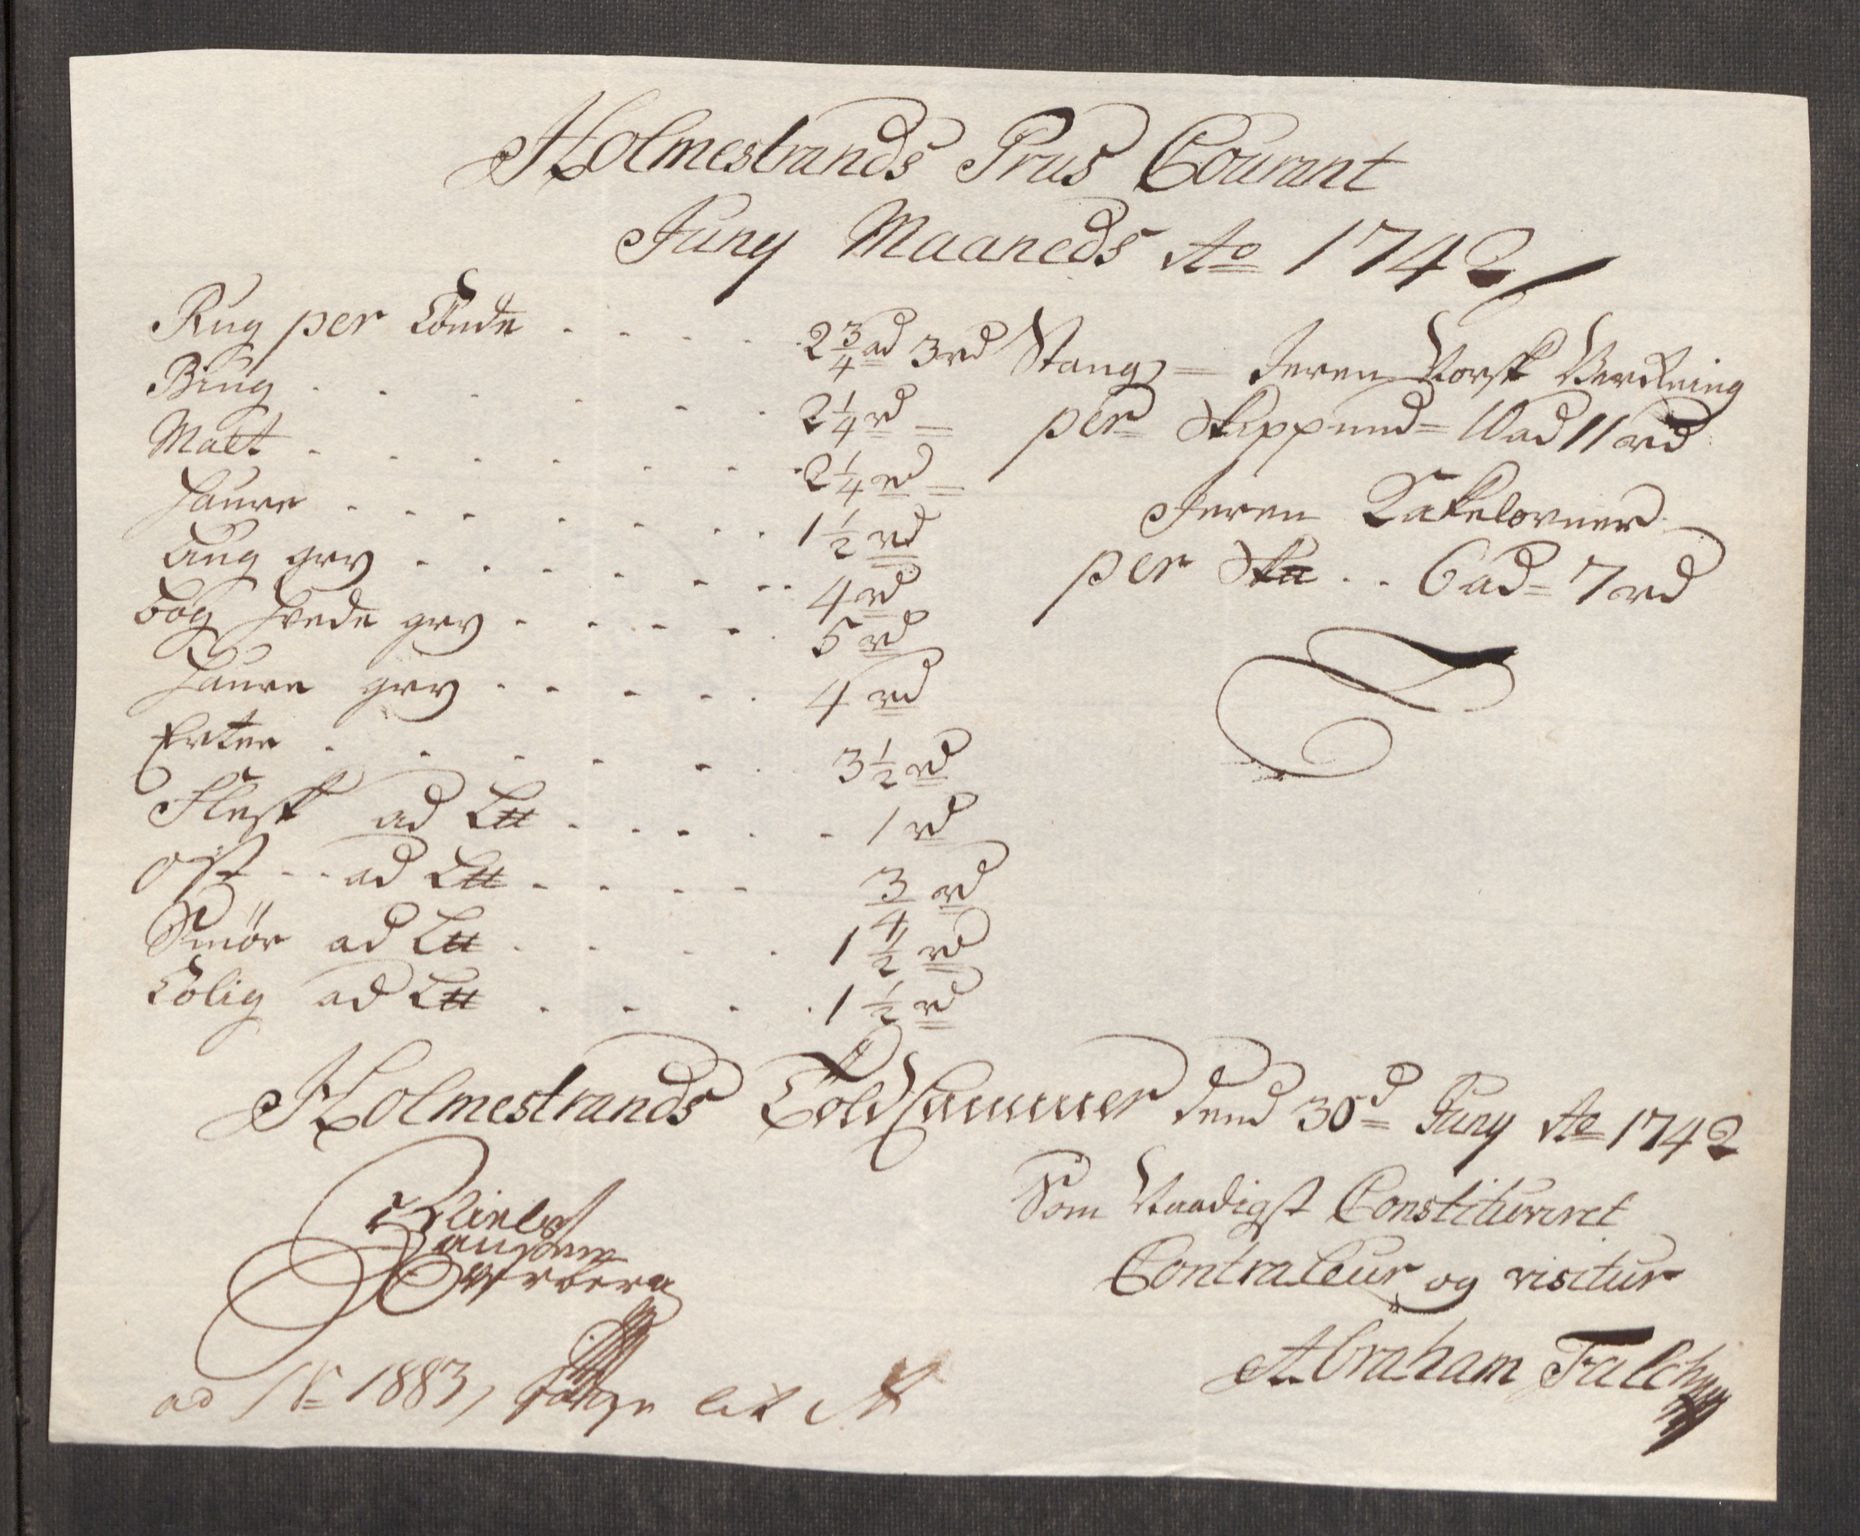 Holmestrands Prus Courant
Juny Maaneds Ao 1742
Rug per Tønde . . . . 2 3/4 ad 3 rd
Biug . . . . . . 2 1/4 rd
Malt . . . . . . 2 1/4 rd
Haure . . . . . . 1 1/2 rd
Biug gry . . . . . . 4 rd
bog Hvede gry . . . . 5 rd
Haure gry . . . . . 4 rd
Erter . . . . . . 3 1/2 rd
Flesk ad L℔ . . . . . 1 rd
Ost . . ad L℔ . . . . 3/4 rd
Smør ad L℔ . . . . 1 1/2 rd
Tolig ad L℔ . . . . 1 1/2 rd
Stang = Jeren Norsk
per Skippund = 10 ad 11 rd
Jeren Kakelovner
per Sk℔ . . 6 ad = 7 rd
Holmestrands Told Cammer dend 30d Juny Ao 1742
Niels
Som Naadigst Constitueret
Contraleur og visitur
Abraham Falch
ad No 1883, lit A